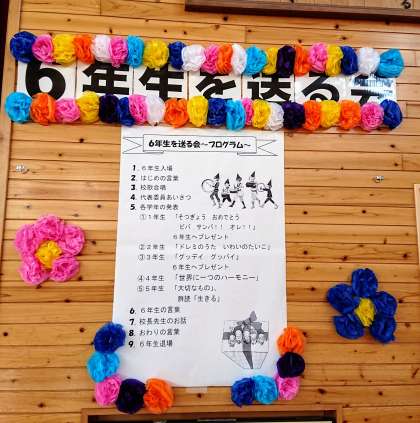 6年生を送る会
6年生を送る会～プログラム～
1．6年生入場
2．はじめの言葉
3．校歌合唱
4．代表委員あいさつ
5．各学年の発表
①1年生 「そつぎょう おめでとう
ビバ サンバ！！ オレ！！」
6年生へプレゼント
②2年生 「ドレミのうた いわいのたいこ」
③3年生 「グッデイ グッバイ」
6年生へプレゼント
④4年生 「世界に一つのハーモニー」
⑤5年生 「大切なもの」、
群読「生きる」
6．6年生の言葉
7．校長先生のお話
8．おわりの言葉
9．6年生退場